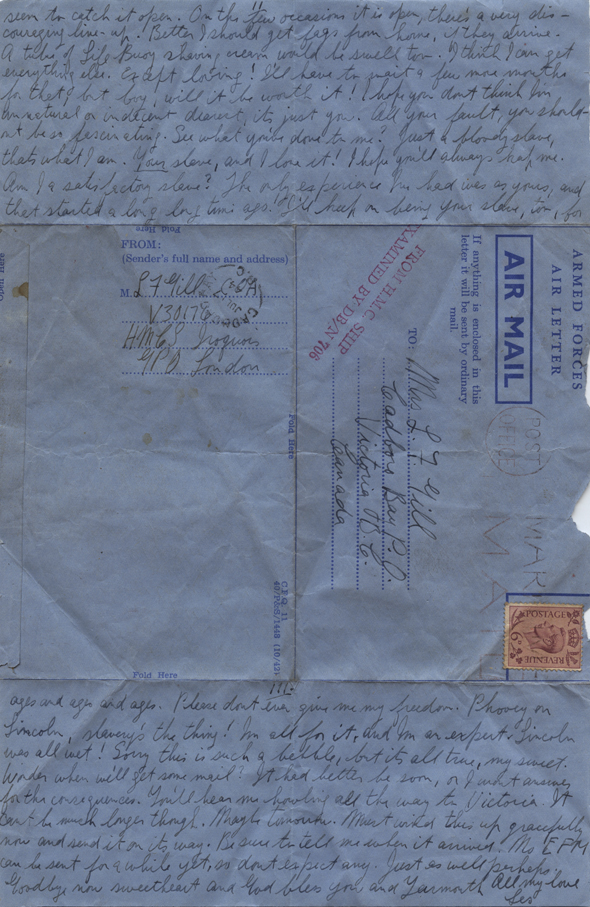 seem to catch it open. On the few occasions it is open, there's a very dis-
couraging line-up. Better I should get fags from home, if they arrive.
A tube of Life Buoy shaving cream would be swell too. I think I can get
everything else. Except loving! I'll have to wait a few more months
for that, but boy, will it be worth it! I hope you don't think I'm
unnatural or indecent dearest, it's just you. All your fault, you should-
nt be so fascinating. See what you've done to me? Just a bloody slave,
thats what I am. Your slave, and I love it! I hope you'll always keep me.
Am I a satisfactory slave? The only experience I've had was as yours, and
that started a long, long time ago. I'll keep on being your slave, too, for
Fold Here
Open Here
FROM:
(Sender's full name and address)
M. L F Gill
V30176
HMCS Iroquois
GPO London
Fold Here
C.F.Q. 11
(10/42)
Fold Here
ARMED FORCES
AIR LETTER
AIR MAIL
If anything is enclosed in this
letter it will be sent by ordinary
mail.
FROM H.M.C. SHIP
EXAMINED BY DB/N 706
TO:
Mrs L. F Gill
Cadboro Bay P.O.
Victoria B.C.
Canada
POST
OFFICE
POSTAGE
REVENUE
III-
ages and ages and ages. Please dont ever give me my freedom. Phooey on
Lincoln, slavery's the thing! Im all for it, and Im an expert. Lincoln
was all wet! Sorry this is such a babble, but its all true, my sweet.
Wonder when we'll get some mail? It had better be soon, or I wont answer
for the consequences. You'll hear me howling all the way to Victoria. It
cant be much longer though. Maybe tomorrow. Must wind this up gracefully
now and send it on its way. Be sure to tell me when it arrived. No EPM
can be sent for a while yet, so dont expect any. Just as well perhaps.
Goodbye now sweetheart and God bless you and Yarmouth All my love
Les